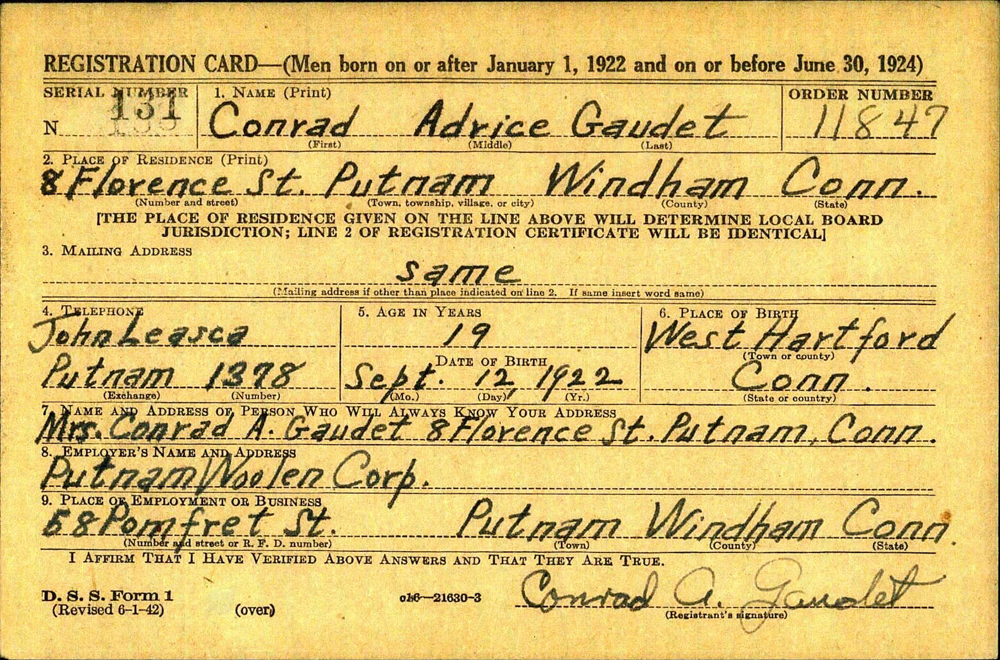 REGISTRATION CARD—(Men born on or after January 1, 1922 and on or before June 30, 1924)
SERIAL NUMBER 1. NAME (Print) ORDER NUMBER
N 131 Conrad Adrice Gaudet 11847
(First) (Middle) (Last)
2. PLACE OF RESIDENCE (Print)
8 Florence St. Putnam Windham Conn.
(Number and street) (Town, township, village, or city) (County) (State)
[THE PLACE OF RESIDENCE GIVEN ON THE LINE ABOVE WILL DETERMINE LOCAL BOARD
JURISDICTION; LINE 2 OF REGISTRATION CERTIFICATE WILL BE IDENTICAL]
3. MAILING ADDRESS
same
(Mailing address if other than place indicated on line 2. If same insert word same)
4. TELEPHONE 5. AGE IN YEARS 6. PLACE OF BIRTH
John Leasca 19 West Hartford
DATE OF BIRTH (Town or county)
Putnam 1378 Sept. 12, 1922 Conn.
(Exchange) (Number) (Mo.) (Day) (Yr.) (State or country)
7. NAME AND ADDRESS OF PERSON WHO WILL ALWAYS KNOW YOUR ADDRESS
Mrs. Conrad A. Gaudet 8 Florence St. Putnam, Conn.
8. EMPLOYER'S NAME AND ADDRESS
Putnam Woolen Corp.
9. PLACE OF EMPLOYMENT OR BUSINESS
58 Pomfret St. Putnam Windham Conn.
(Number and street or R. F. D. number) (Town) (County) (State)
I AFFIRM THAT I HAVE VERIFIED ABOVE ANSWERS AND THAT THEY ARE TRUE.
D. S. S. Form 1
(Revised 6-1-42) (over) 16—21630-3 Conrad A. Gaudet
(Registrant's signature)